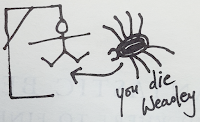 you die
Weasley